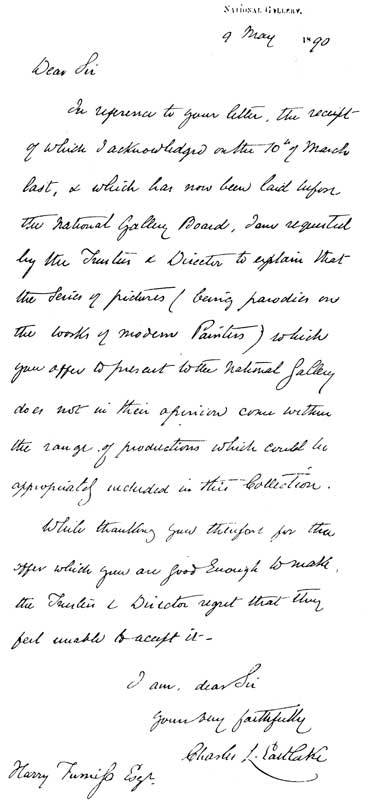 NATIONAL GALLERY.
9 May 1890
Dear Sir
In reference to your letter, the receipt
of which I acknowledged on the 10th of March
last, & which has now been laid before
the National Gallery Board, I am requested
by the Trustees & Director to explain that
the Series of pictures (being parodies on
the works of modern Painters) which
you offer to present to the National Gallery
does not in their opinion come within
the range of productions which could be
appropriately included in this Collection.
While thanking you therefore for the
offer which you are good Enough to make,
the Trustees & Director regret that they
feel unable to accept it—
I am, dear Sir
yours very faithfully
Charles L. Eastlake
Harry Furniss Esqr.